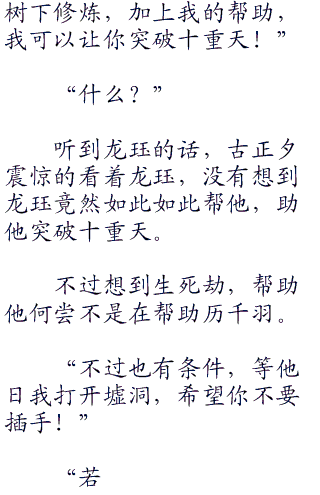 树下修炼，加上我的帮助，
我可以让你突破十重天！”
“什么？”
听到龙珏的话，古正夕
震惊的看着龙珏，没有想到
龙珏竟然如此如此帮他，助
他突破十重天。
不过想到生死劫，帮助
他何尝不是在帮助历千羽。
“不过也有条件，等他
日我打开墟洞，希望你不要
插手！”
“若